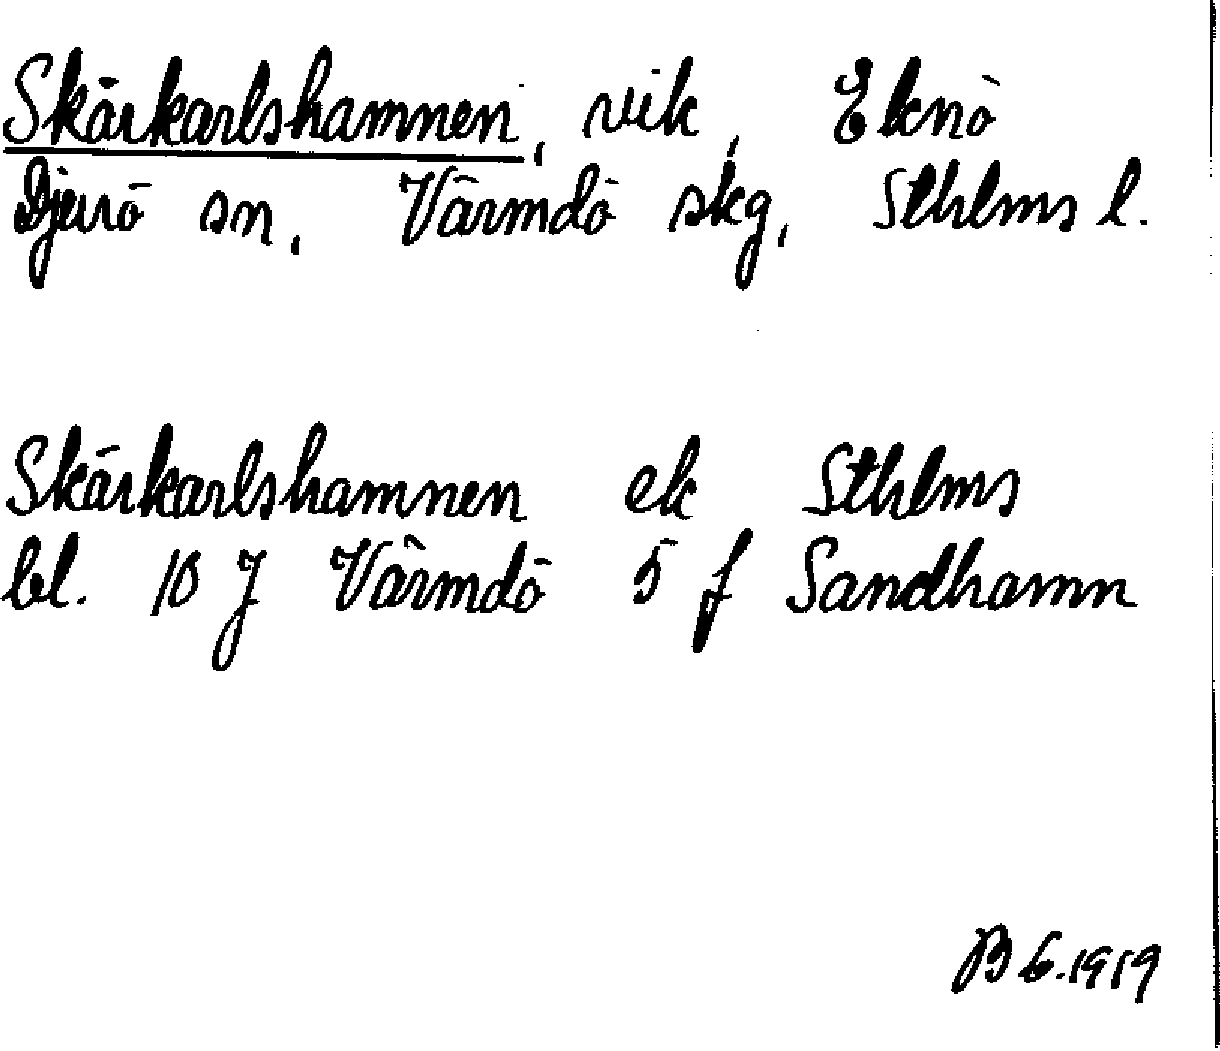 Skärkarlshamnen, vik, Eknö
Djurö sn, Värmdö skg, Sthlms l.
Skärkarlshamnen ek Sthlms
bl. 10 J Värmdö 5 f Sandhamn
B G. 1919